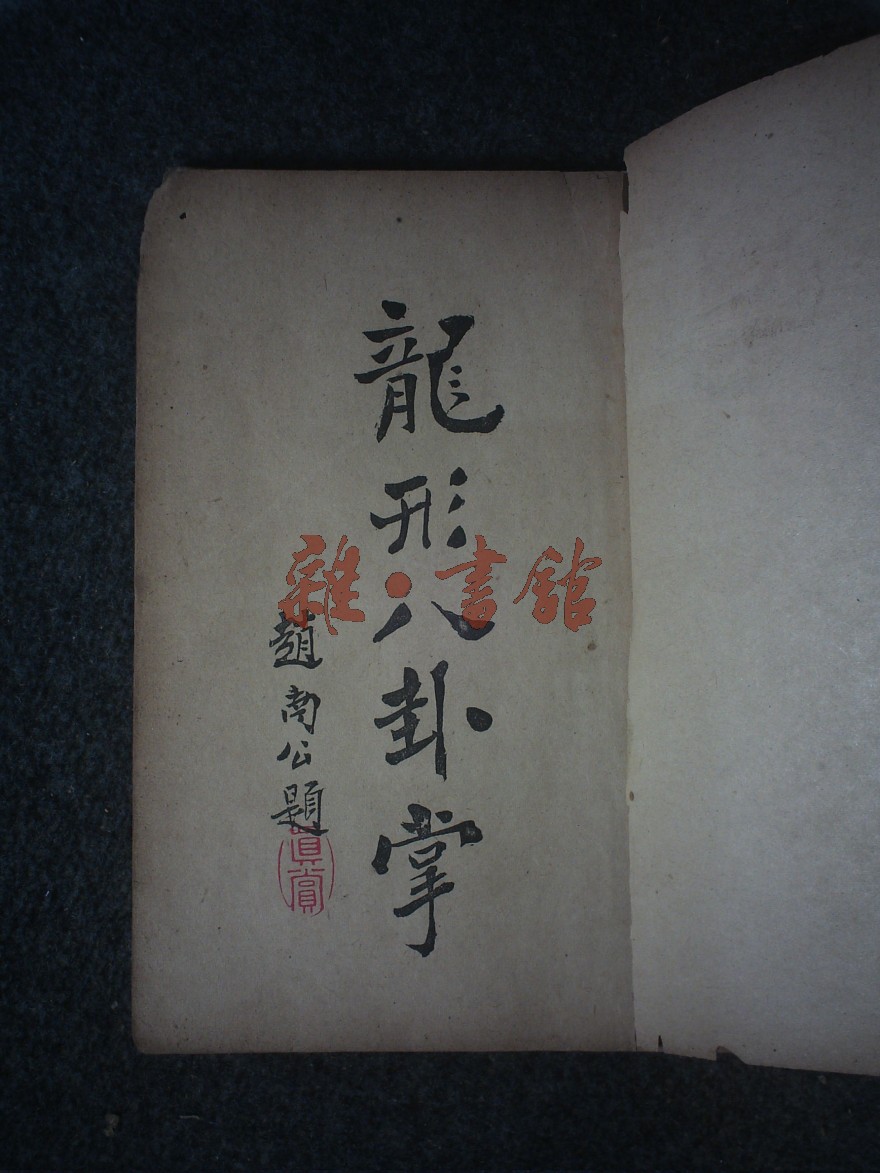 龍形八卦掌
趙南公題
真賞
雜·書館